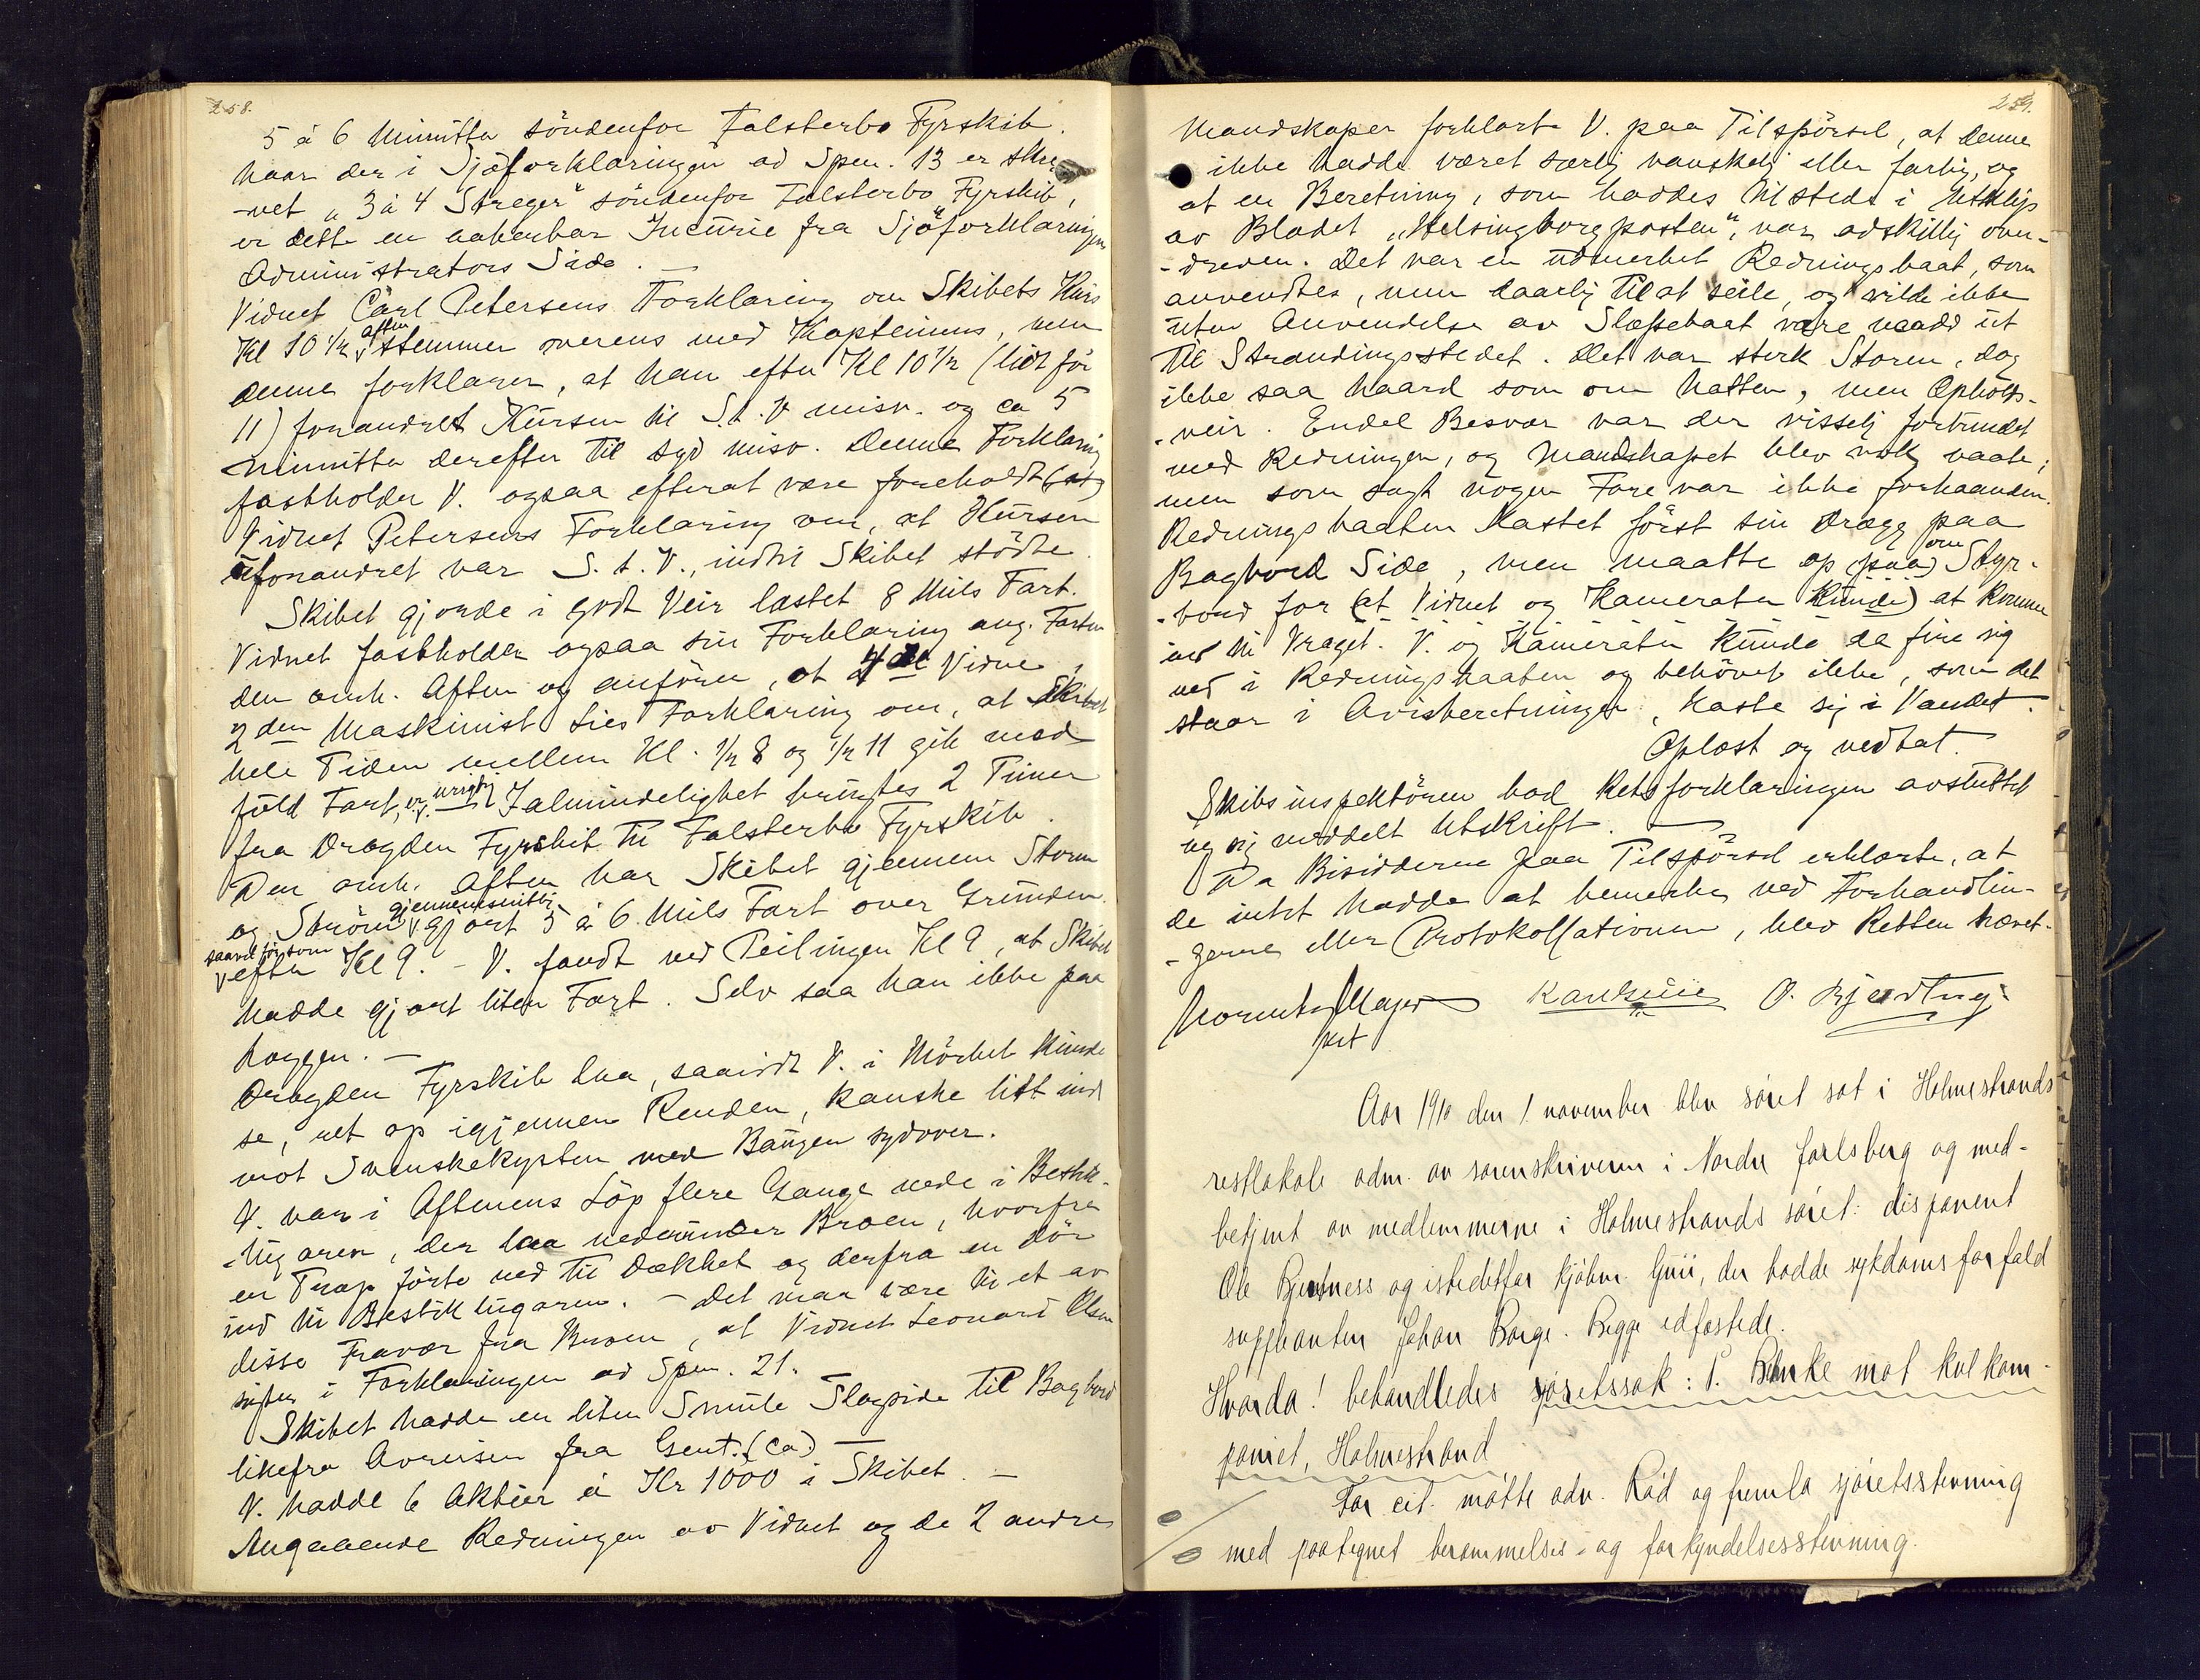 258.
5 à 6 Minutter söndenfor Falsterbo Fyrskib.
Naar der i Sjöforklaringen ad Spm. 13 er skre-
-vet „3 à 4 Streger" söndenfor Falsterbo Fyrskib,
er dette en aabenbar Incurie fra Sjöforklaringens
Administrators Side. —
Vidnet Carl Petersens Forklaring om Skibets Kurs
Kl 10½ aften stemmer overens med Kapteinens, men
denne forklarer, at han efter Kl 10½ (lidt før
11) forandret Kursen til S.t.V misv. og ca 5
Minutter derefter til syd misv. Denne Forklaring
fastholder V. ogsaa efterat være foreholdt
Vidnet Petersens Forklaring om, at Kursen
uforandret var S.t.V., indtil Skibet stödte.
Skibet gjorde i godt Veir lastet 8 Mils Fart.
Vidnet fastholder ogsaa sin Forklaring ang. Farten
den omh. Aften og anförer, at 4de Vidne
2den Maskinist Lies Forklaring om, at Skibet
hele Tiden mellem Kl. ½ 8 og ½ 11 gik med
fuld Fart, er urigtig. I almindelighet bruktes 2 Timer
fra Drogden Fyrskib til Falsterbo Fyrskib.
Den omh. Aften har Skibet gjennem Storm
og Ström gjennemsnitlig gjort 5 à 6 Mils Fart over Grunden
saavel för som efter Kl 9. - V. fandt ved Peilingen Kl 9, at Skibet
hadde gjort liten Fart. Selv saa han ikke paa
Loggen. —
Drogden Fyrskib laa, saavidt V. i Mörket kunde
se, ret op igjennem Renden, kanske litt ind
mot Svenskekysten med Baugen sydover.
V. var i Aftenens Löp flere Gange nede i Bestik-
-lugaren, der laa nedunder Broen, hvorfra
en Trap förte ned til Dækket og derfra en Dör
ind til Bestiklugaren. - Det maa være til et av
disse Fravær fra Broen, at Vidnet Leonard Olsen
sigter i Forklaringen ad Spm. 21.
Skibet hadde en liten Smule Slagside til Bagbord
likefra Avreisen fra Gent. (ca) —
V. hadde 6 Aktier à Kr 1000 i Skibet. —
Angaaende Redningen av Vidnet og de 2 andre
259.
Mandskaper forklarte V. paa Tilspörsel, at denne
ikke hadde været særlig vanskelig eller farlig, og
at en Beretning, som haddes tilstede i Utklip
av Bladet „Helsingborgposten", var adskillig over-
-dreven. Det var en udmerket Redningsbaat, som
anvendtes, men daarlig til at seile, og vilde ikke
uten Anvendelse av Slæpebaat være naadd ut
til Strandingsstedet. Det var sterk Storm, dog
ikke saa haard som om Natten, men Opholds-
-veir. Endel Besvær var der visselig forbundet
med Redningen, og Mandskapet blev nok vaate;
men som sagt nogen Fare var ikke forhaanden.
Redningsbaaten kastet först sin Dræg paa
Bagbord Side, men maatte op (paa) om Styr-
-bord for (at Vidnet og Kameraten kunde) at komme
ind til Vraget. V. og Kameraten kunde da fire sig
ned i Redningsbaaten og behövet ikke, som det
staar i Avisberetningen, kaste sig i Vandet.
Oplæst og vedtat.
Skibsinspektören bad Retsforklaringen avsluttet
og sig meddelt Utskrift. —
Da Bisidderne paa Tilspörsel erklærte, at
de intet hadde at bemerke ved Forhandlin-
-gerne eller Protokollationen, blev Retten hævet.
O. Bjertnæs
Aar 1910 den 1. november blev sjöret sat i Holmestrands
restlokale adm. av sorenskriveren i Nordre Jarlsberg og med-
betjent av medlemmerne i Holmestrands sjöret: disponent
Ole Bjertness og istedetfor kjöbm. Guii, der hadde sykdomsforfald
suppleanten Johan Borge. Begge edfæstede.
Hvorda! behandledes sjöretssak: P. Behnke mot kulkom-
paniet, Holmestrand
For cit. mötte adv. Röd og fremla sjöretsstevning
med paategnet berammelses- og forkyndelsesstevning.